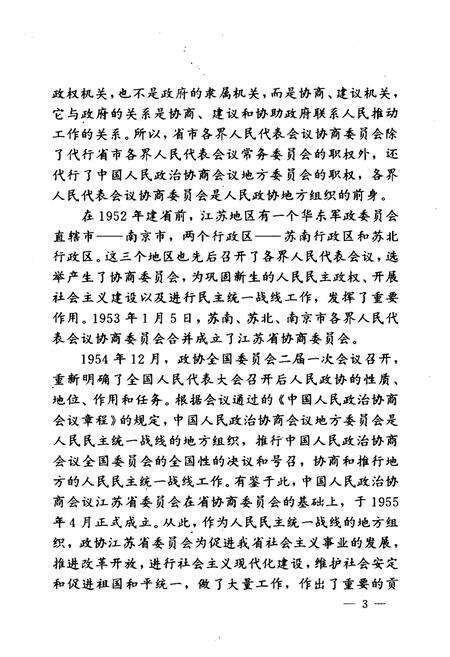 政权机关，也不是政府的隶属机关，而是协商、建议机关，
它与政府的关系是协商、建议和协助政府联系人民推动
工作的关系。所以，省市各界人民代表会议协商委员会除
了代行省市各界人民代表会议常务委员会的职权外，还
代行了中国人民政治协商会议地方委员会的职权，各界
人民代表会议协商委员会是人民政协地方组织的前身。
在1952年建省前，江苏地区有一个华东军政委员会
直辖市——南京市，两个行政区——苏南行政区和苏北
行政区。这三个地区也先后召开了各界人民代表会议，选
举产生了协商委员会，为巩固新生的人民民主政权、开展
社会主义建设以及进行民主统一战线工作，发挥了重要
作用。1953年1月5日，苏南、苏北、南京市各界人民代
表会议协商委员会合并成立了江苏省协商委员会。
1954年12月，政协全国委员会二届一次会议召开，
重新明确了全国人民代表大会召开后人民政协的性质、
地位、作用和任务。根据会议通过的《中国人民政治协商
会议章程》的规定，中国人民政治协商会议地方委员会是
人民民主统一战线的地方组织，推行中国人民政治协商
会议全国委员会的全国性的决议和号召，协商和推行地
方的人民民主统一战线工作。有鉴于此，中国人民政治协
商会议江苏省委员会在省协商委员会的基础上，于1955
年4月正式成立。从此，作为人民民主统一战线的地方组
织，政协江苏省委员会为促进我省社会主义事业的发展，
推进改革开放，进行社会主义现代化建设，维护社会安定
和促进祖国和平统一，做了大量工作，作出了重要的贡
— 3 —